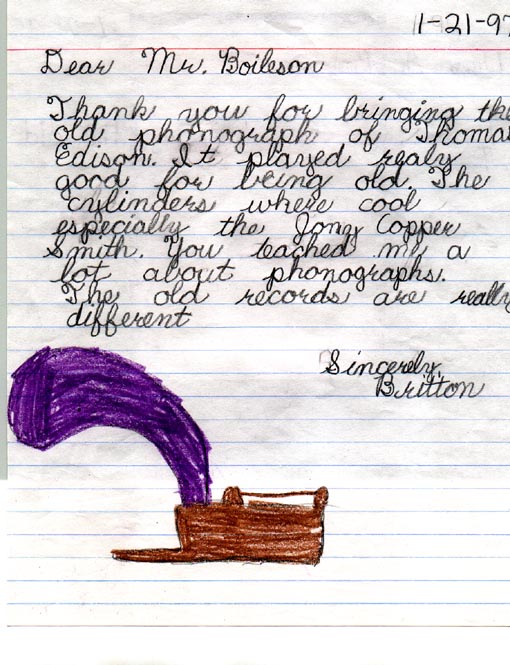 1-21-97
Dear Mr. Boileson
Thank you for bringing the
old phonograph of Thomas
Edison. It played realy
good for being old. The
cylinders where cool
especially the Jony Copper
Smith. You teached me a
lot about phonographs.
The old records are really
different
Sincerely,
Britton